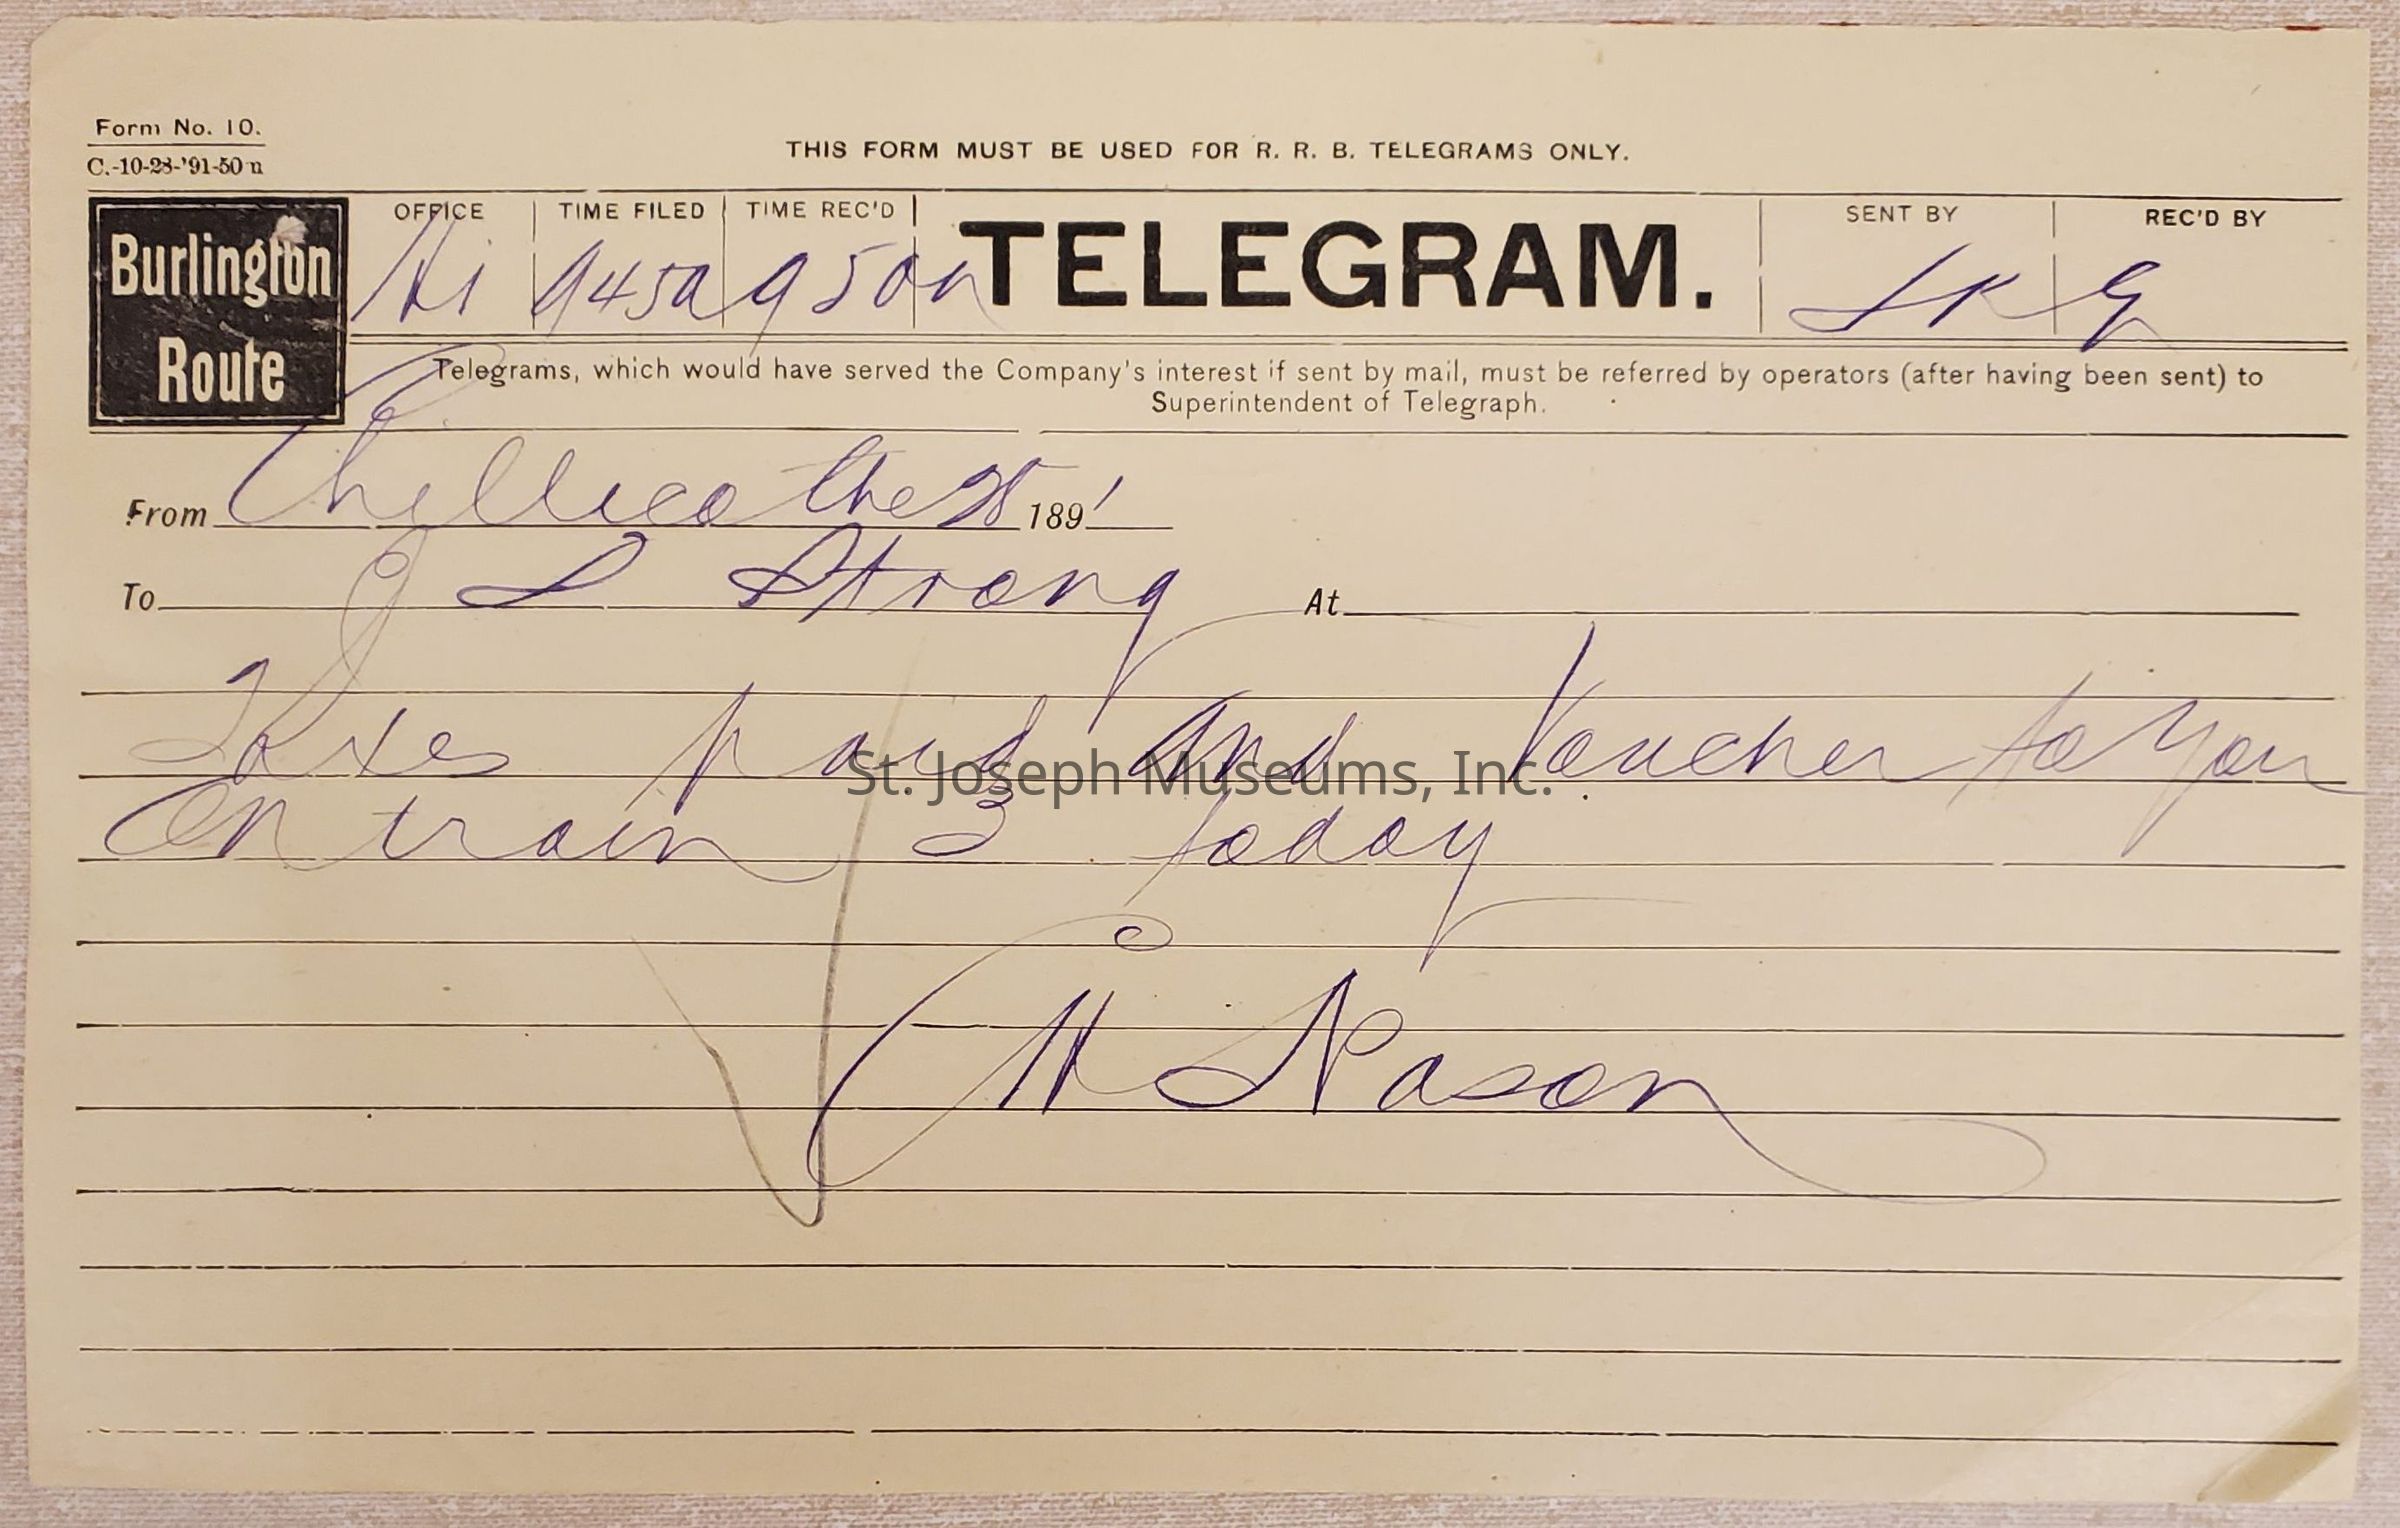 Form No. 10.
C.-10-28-'91-50 m
THIS FORM MUST BE USED FOR R. R. B. TELEGRAMS ONLY.
Burlington
Route
OFFICE TIME FILED TIME REC'D TELEGRAM. SENT BY REC'D BY
Hi 945a 950a SK G
Telegrams, which would have served the Company's interest if sent by mail, must be referred by operators (after having been sent) to
Superintendent of Telegraph.
From Chillicothe 28 1891
To J S Strong At
Taxes paid and Voucher to You
On train 3 today
C H Nason
St. Joseph Museums, Inc.